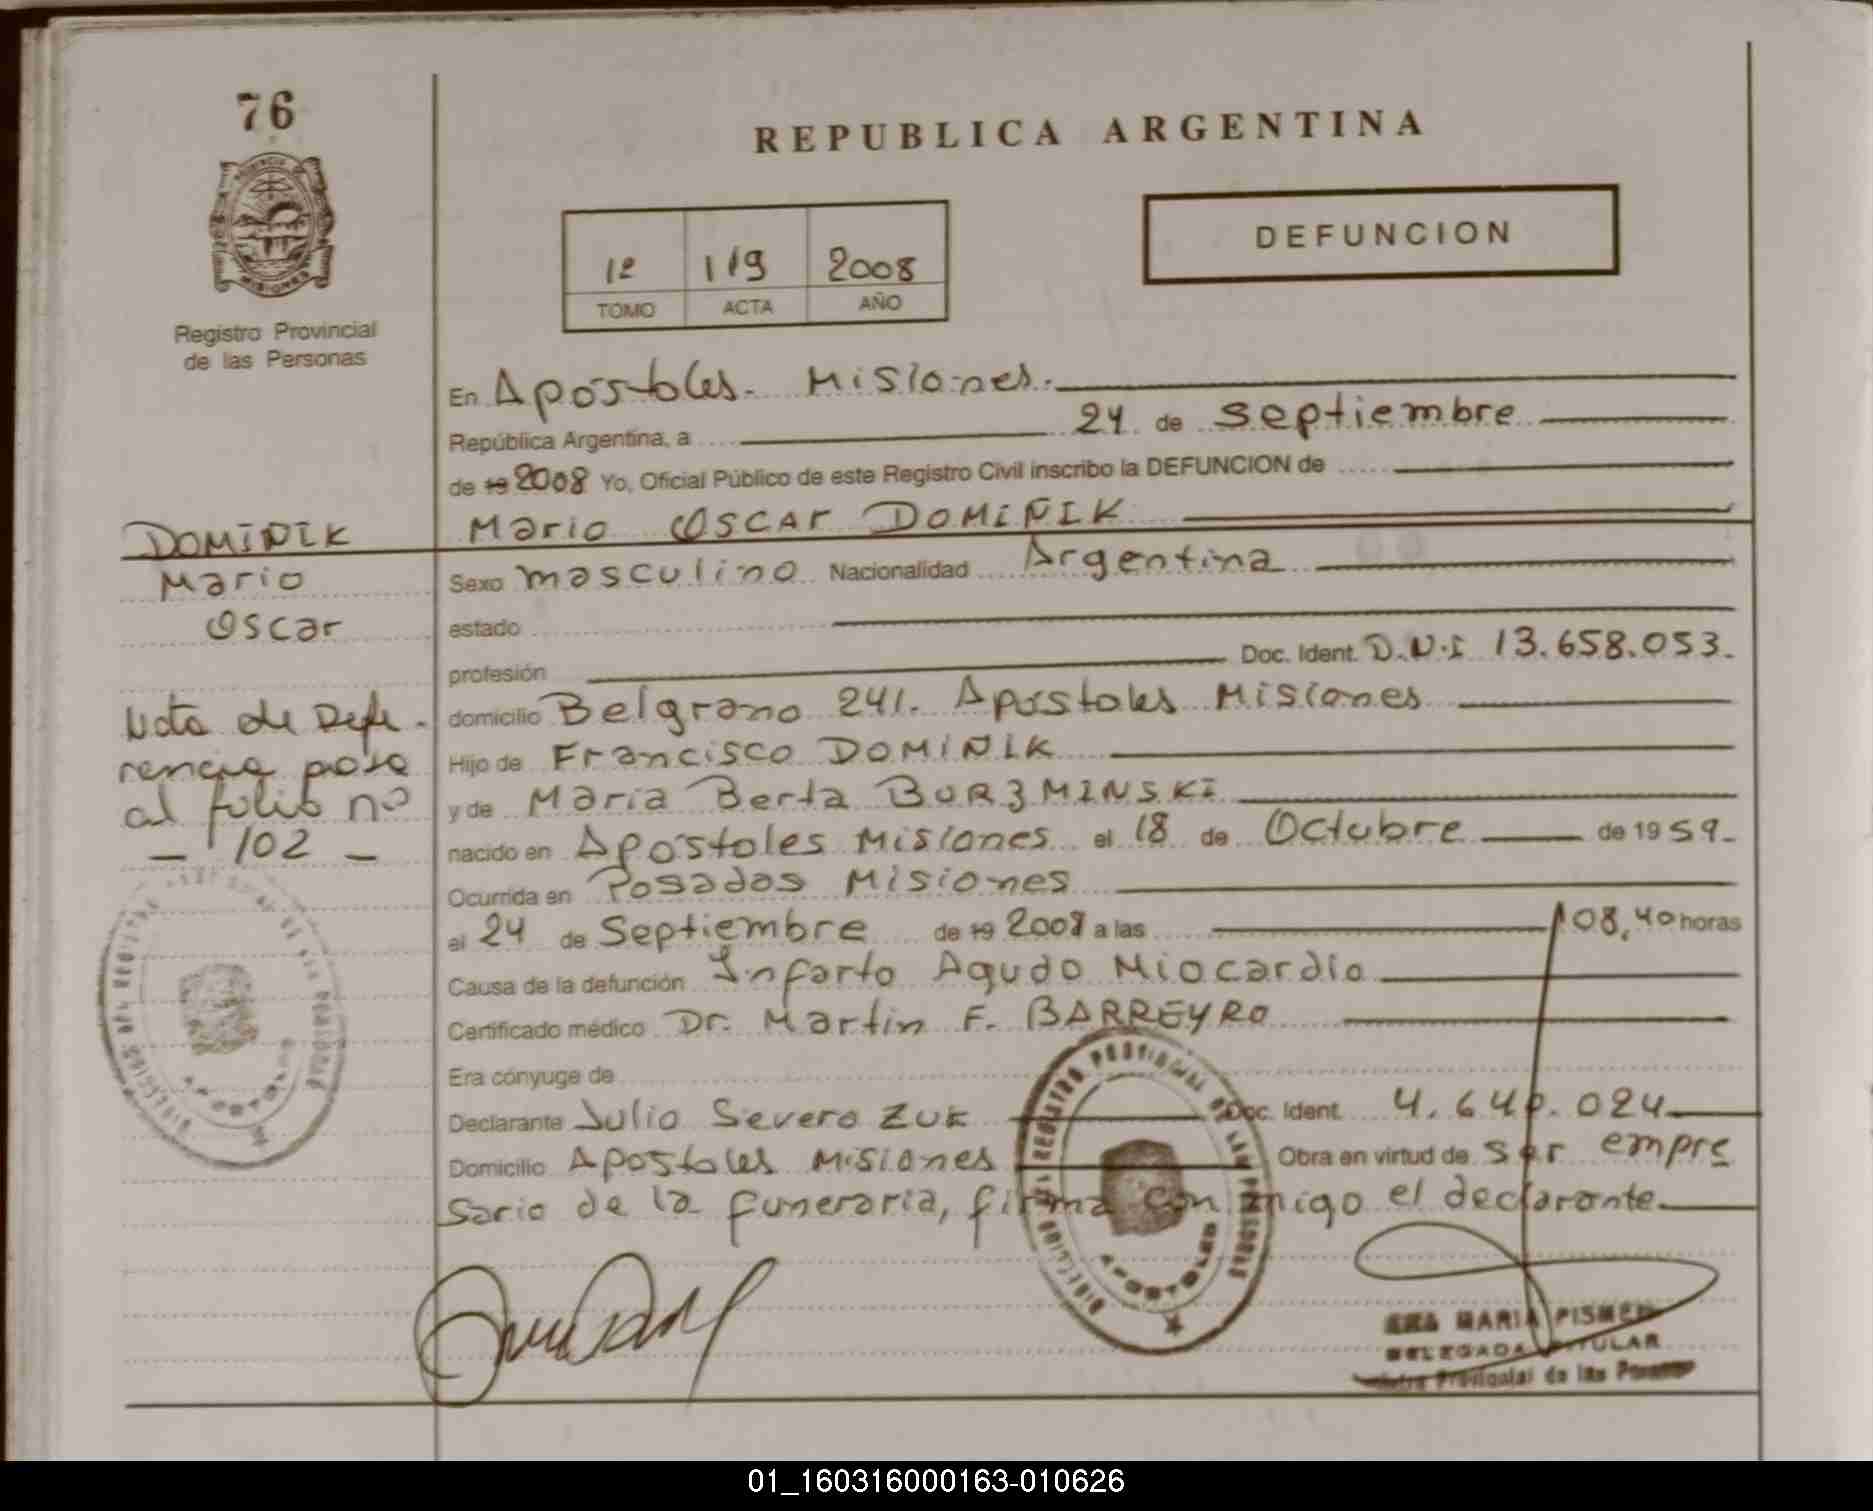 76
REPUBLICA ARGENTINA
DEFUNCION
1º 119 2008
TOMO ACTA AÑO
Registro Provincial
de las Personas
En Apóstoles. Misiones.
República Argentina, a 24 de Septiembre
de 19 2008 Yo, Oficial Público de este Registro Civil inscribo la DEFUNCION de
Mario Oscar DOMIÑIK
DOMIÑIK
Mario
Oscar
Sexo masculino Nacionalidad Argentina
estado
profesión Doc. Ident. D.N.I 13.658.053.
domicilio Belgrano 241. Apóstoles Misiones
Hijo de Francisco DOMIÑIK
y de Maria Berta BURZMINSKI
nacido en Apóstoles Misiones el 18 de Octubre de 1959.
Ocurrida en Posadas Misiones
el 24 de Septiembre de 19 2008 a las 08,40 horas
Causa de la defunción Infarto Agudo Miocardio
Certificado médico Dr. Martin F. BARREYRO
Era cónyuge de
Declarante Julio Severo ZUK Doc. Ident. 4.640.024
Domicilio Apóstoles Misiones Obra en virtud de ser empre
sario de la funeraria, firma con migo el declarante.
Nota de Defe-
rencia pasa
al folio nº
- 102 -
DIRECCION DEL REGISTRO PROVINCIAL DE LAS PERSONAS
APOSTOLES
MARIA PISMEN
DELEGADA TITULAR
Provincial de las
01_160316000163-010626